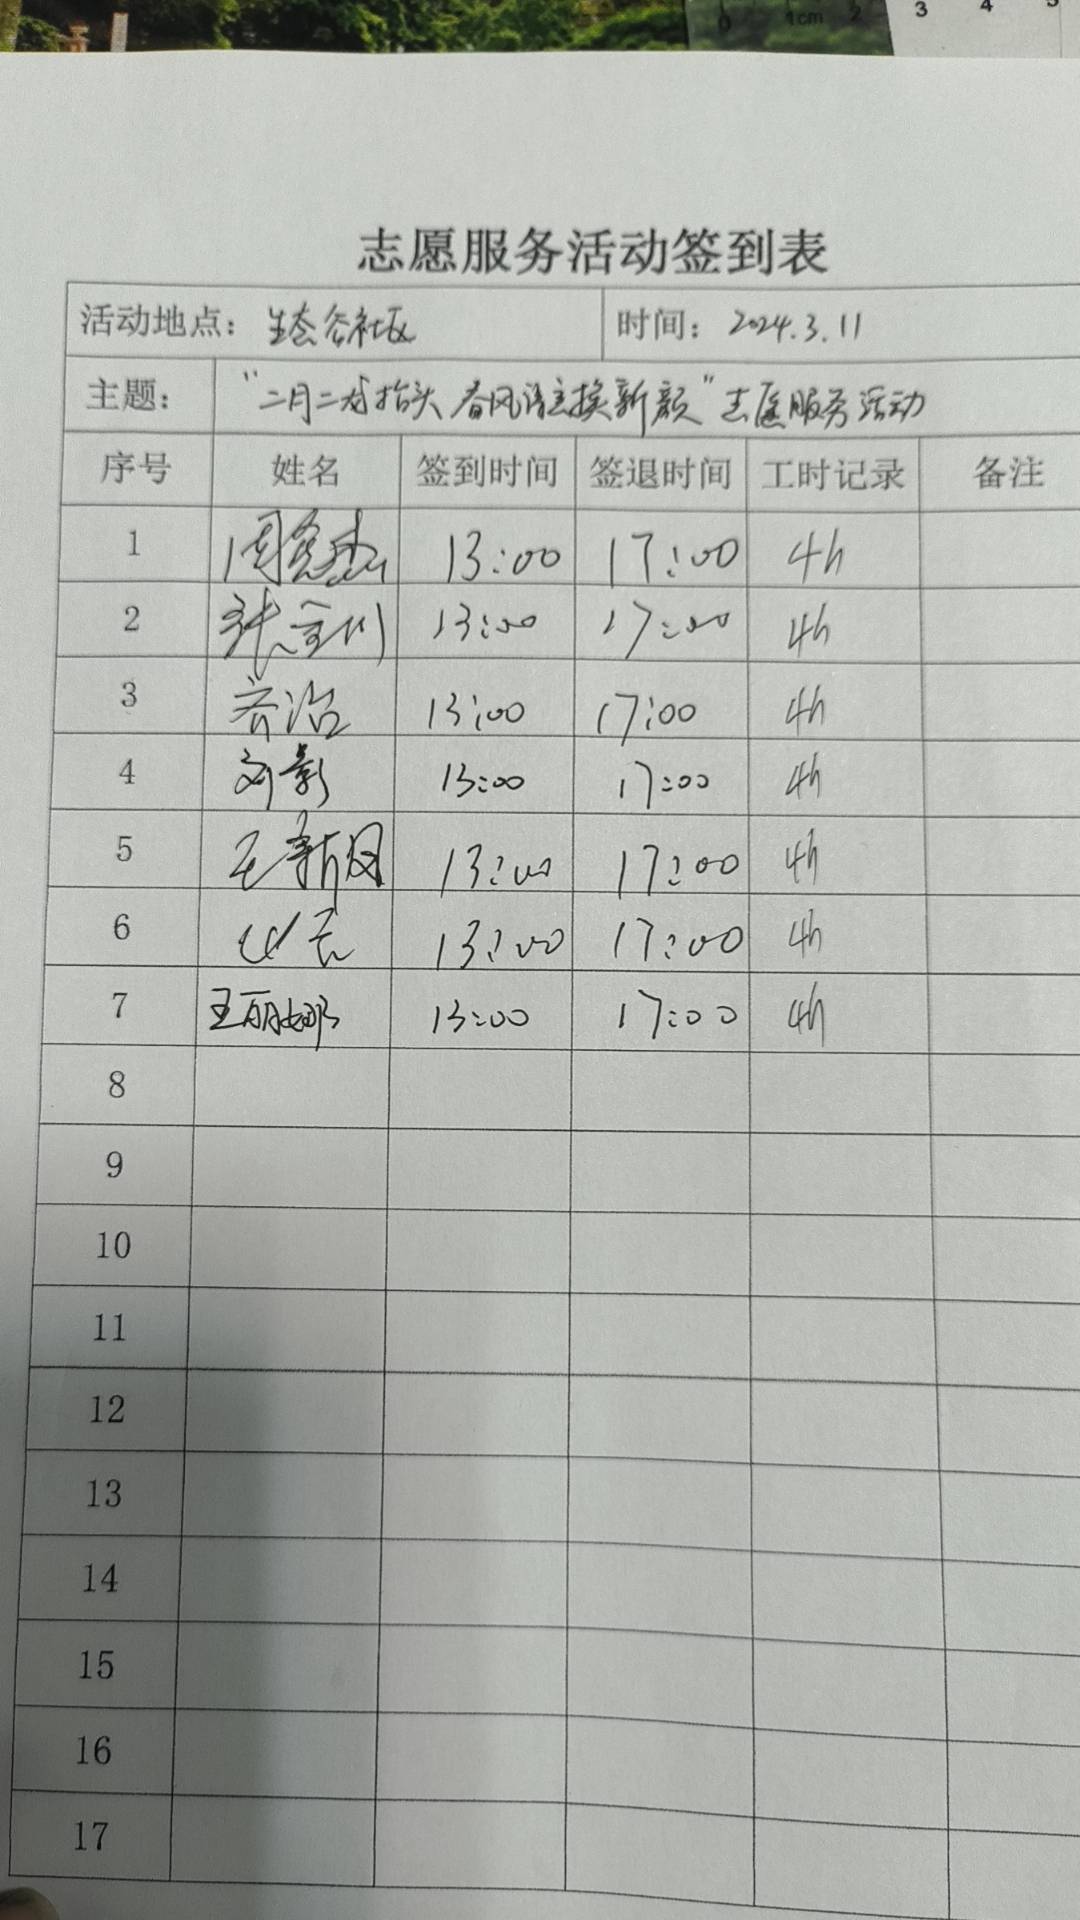 0 1cm 2 3 4 5
志愿服务活动签到表
活动地点：生态谷社区 时间：2024.3.11
主题： "二月二龙抬头 春风送主换新颜"志愿服务活动
序号 姓名 签到时间 签退时间 工时记录 备注
1 13:00 17:00 4h
2 张金川 13:00 17:00 4h
3 齐治 13:00 17:00 4h
4 刘影 13:00 17:00 4h
5 王新月 13:00 17:00 4h
6 13:00 17:00 4h
7 王丽娜 13:00 17:00 4h
8
9
10
11
12
13
14
15
16
17